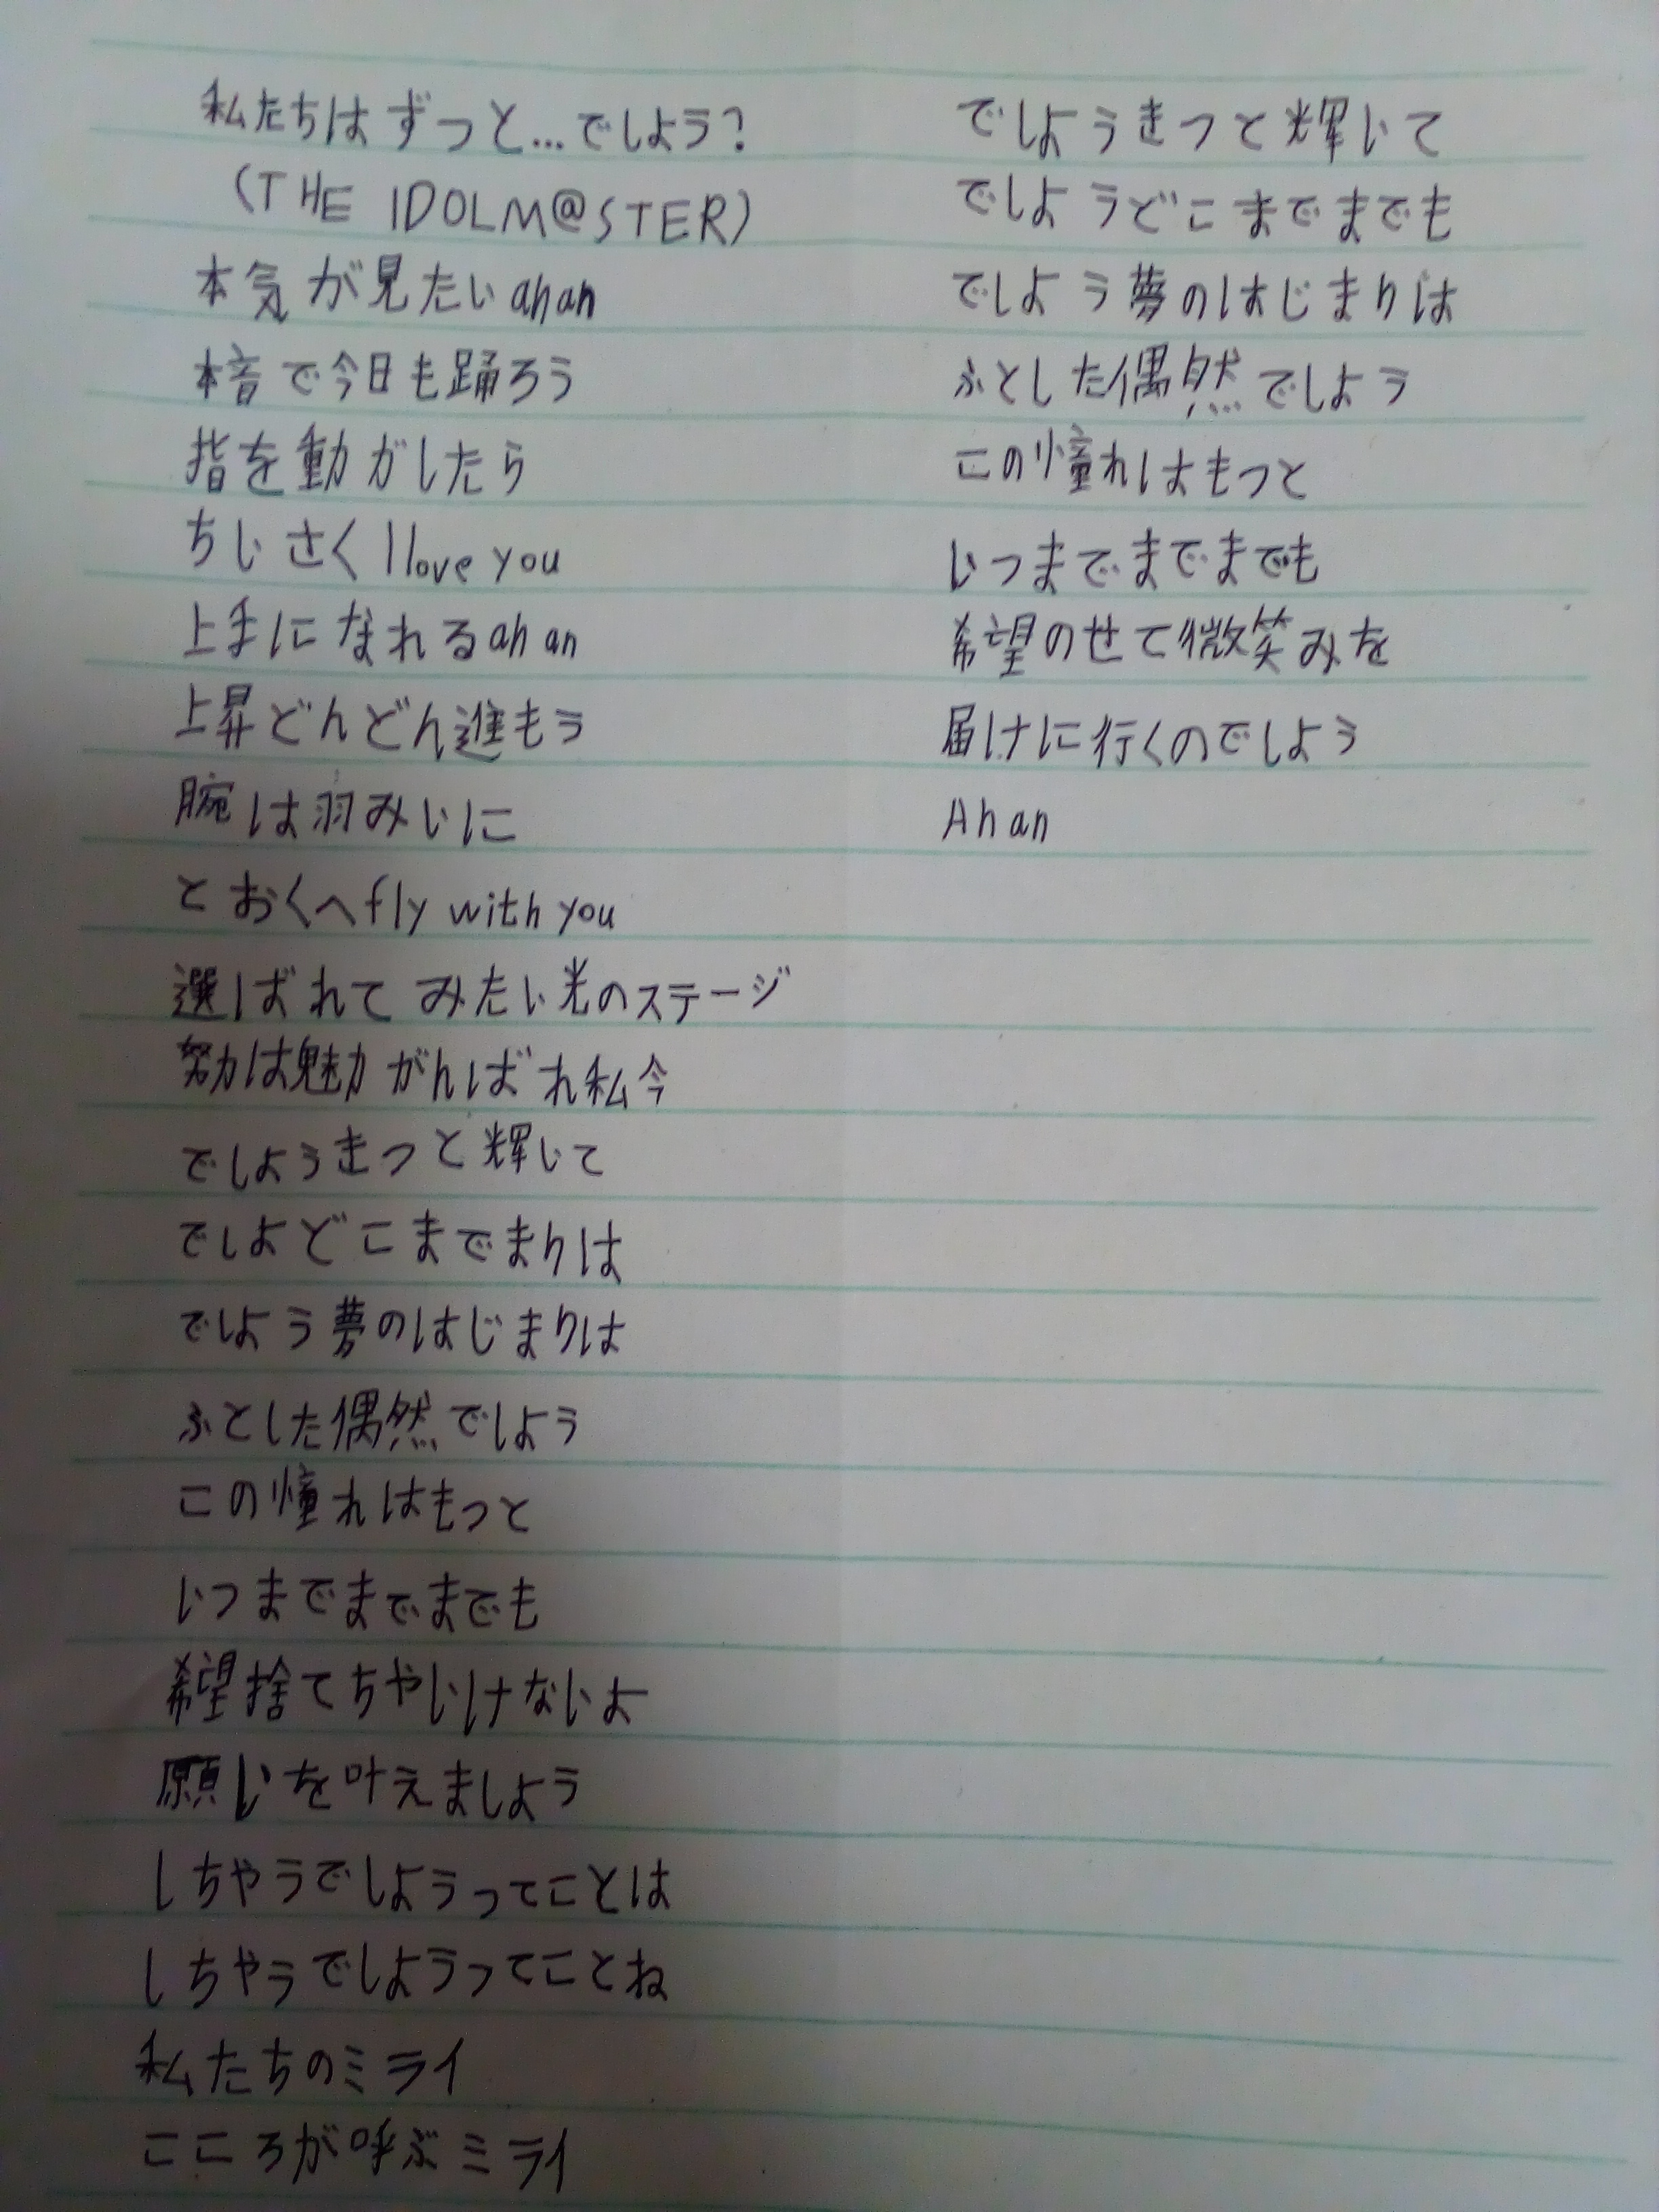 私たちはずっと…でしよう?
(THE IDOLM@STER)
本気が見たいahan
本音で今日も踊ろう
指を動がしたら
ちいさく I love you
上手になれるahan
上昇どんどん進もう
腕は羽みいに
とおくへfly with you
選ばれてみたい光のステージ
努力は魅力がんばれ私今
でしようきっと輝いて
でしよどこまでまりは
でしよう夢のはじまりは
ふとした偶然でしよう
この憧れはもっと
いつまでまでまでも
希望捨てちやいけないよ
願いを叶えましよう
しちやうでしようってことは
しちやうでしようってことね
私たちのミライ
こころが呼ぶミライ
でしようきっと輝いて
でしようどこまでまでも
でしよう夢のはじまりは
ふとした偶然でしよう
この憧れはもっと
いつまでまでまでも
希望のせて微笑みを
届けに行くのでしよう
Ahan